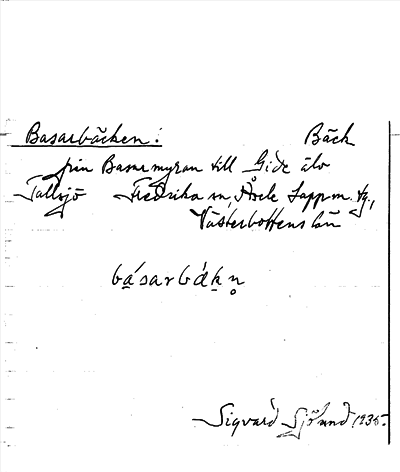 Basarbäcken: Bäck
från Basarmyran till Gide älv
Tallsjö Fredrika sn, Åsele Lappm. tg,
Västerbottens län
básarbäkn̥
Sigvard Sjölund 1935.